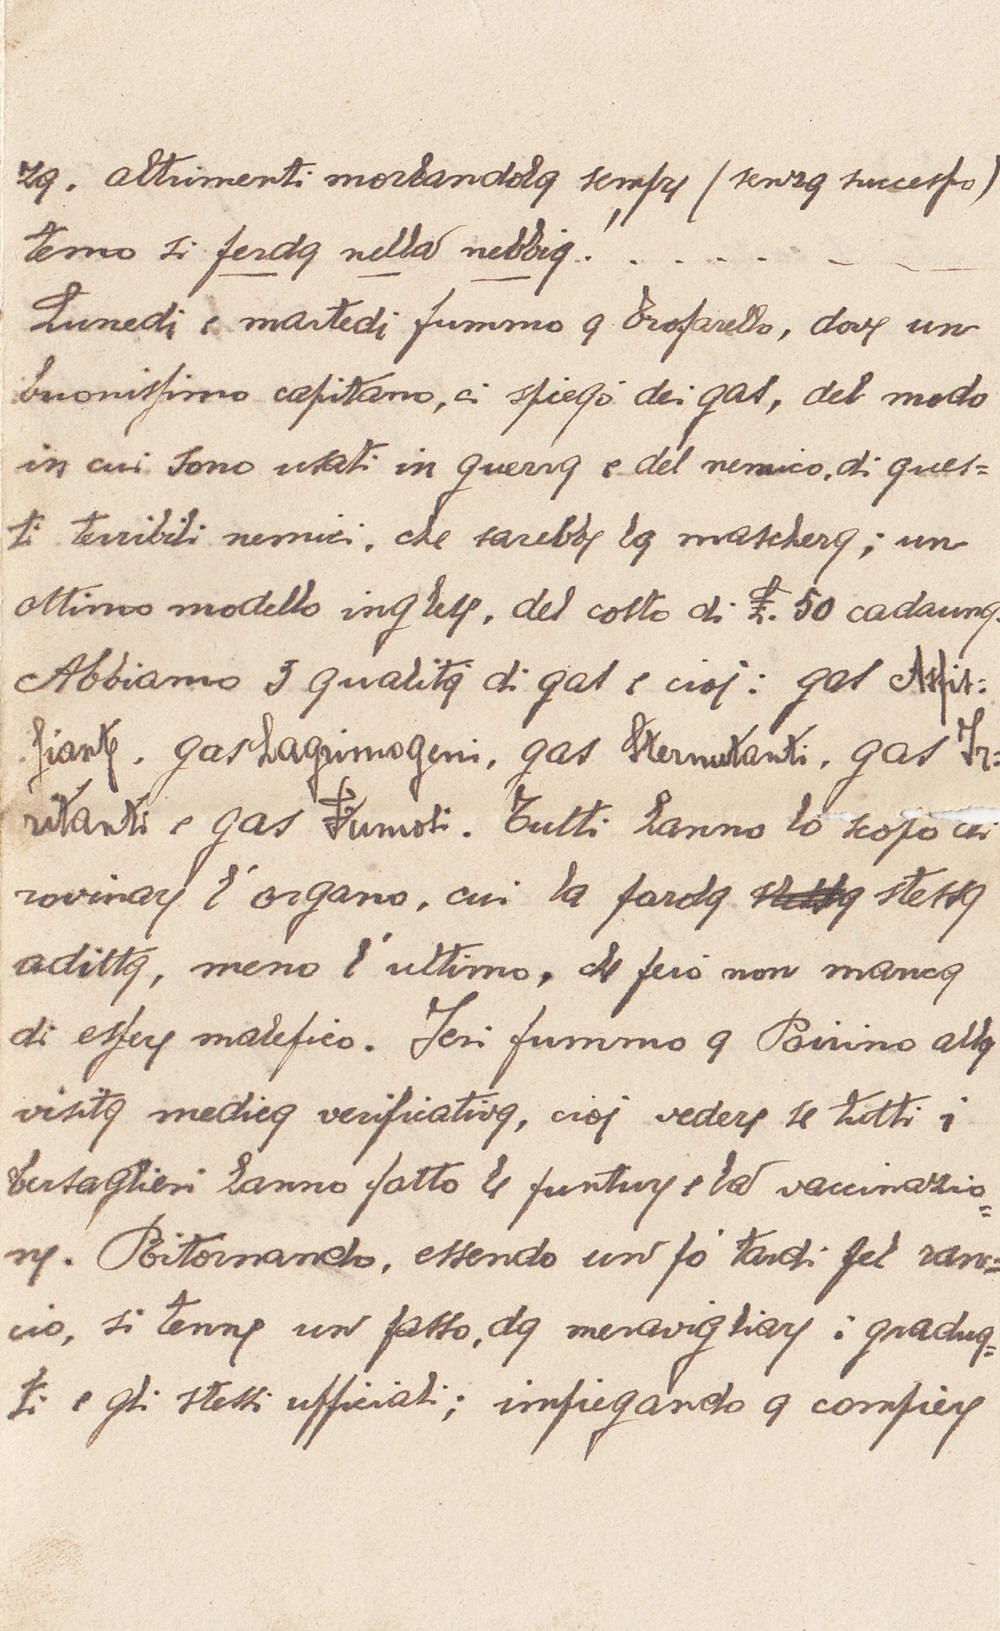 za. altrimenti morbandola sempre (senza successo)
temo si perda nella nebbia. . . . . .
Lunedi e martedi fummo a Trofarello, dove un
buonissimo capitano, ci spiegò dei gas, del modo
in cui sono usati in guerra e del nemico, di ques=
ti terribili nemici, che sarebbe la maschera; un
ottimo modello inglese, del costo di £. 50 cadauna.
Abbiamo 5 qualità di gas e cioè: gas Asfis:
siante, gas Lagrimogeni, gas Sternutanti, gas Ir:
ritanti e gas Fumosi. Tutti hanno lo scopo di
rovinare l'organo, cui la parola stessa
aditta, meno l'ultimo, che però non manca
di essere malefico. Ieri fummo a Pirino alla
visita medica verificativa, cioè vedere se tutti i
bersaglieri hanno fatto le punture e la vaccinazio=
ne. Ritornando, essendo un pò tardi pel ran=
cio, si tenne un passo, da meravigliare i gradua=
ti e gli stessi ufficiali; impiegando a compiere